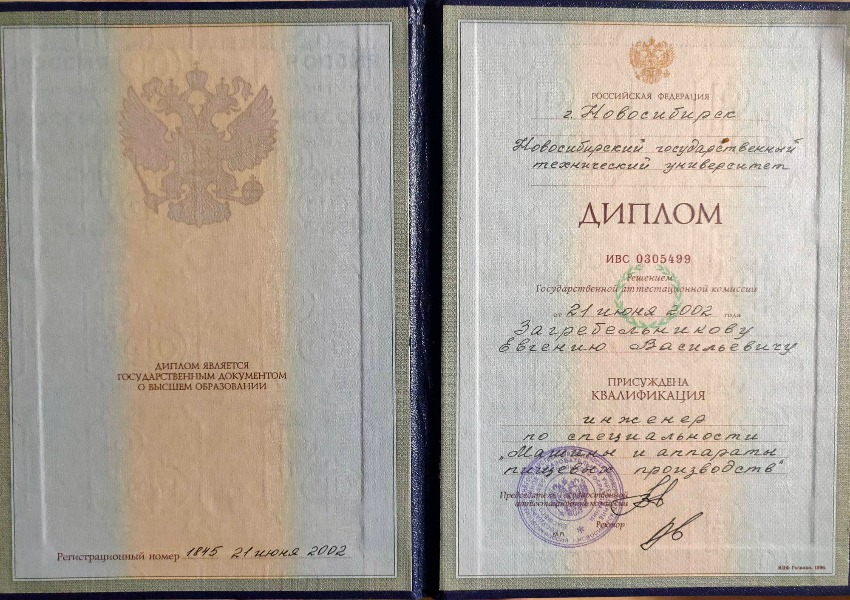 ДИПЛОМ ЯВЛЯЕТСЯ
ГОСУДАРСТВЕННЫМ ДОКУМЕНТОМ
О ВЫСШЕМ ОБРАЗОВАНИИ
Регистрационный номер 1845 21 июня 2002
РОССИЙСКАЯ ФЕДЕРАЦИЯ
г. Новосибирск
Новосибирский государственный
технический университет
ДИПЛОМ
ИВС 0305499
Решением
Государственной аттестационной комиссии
от 21 июня 2002 года
Загребельникову
Евгению Васильевичу
ПРИСУЖДЕНА
КВАЛИФИКАЦИЯ
инженер
по специальности
„Машины и аппараты
пищевых производств"
Председатель Государственной
аттестационной комиссии
Ректор
М.П.